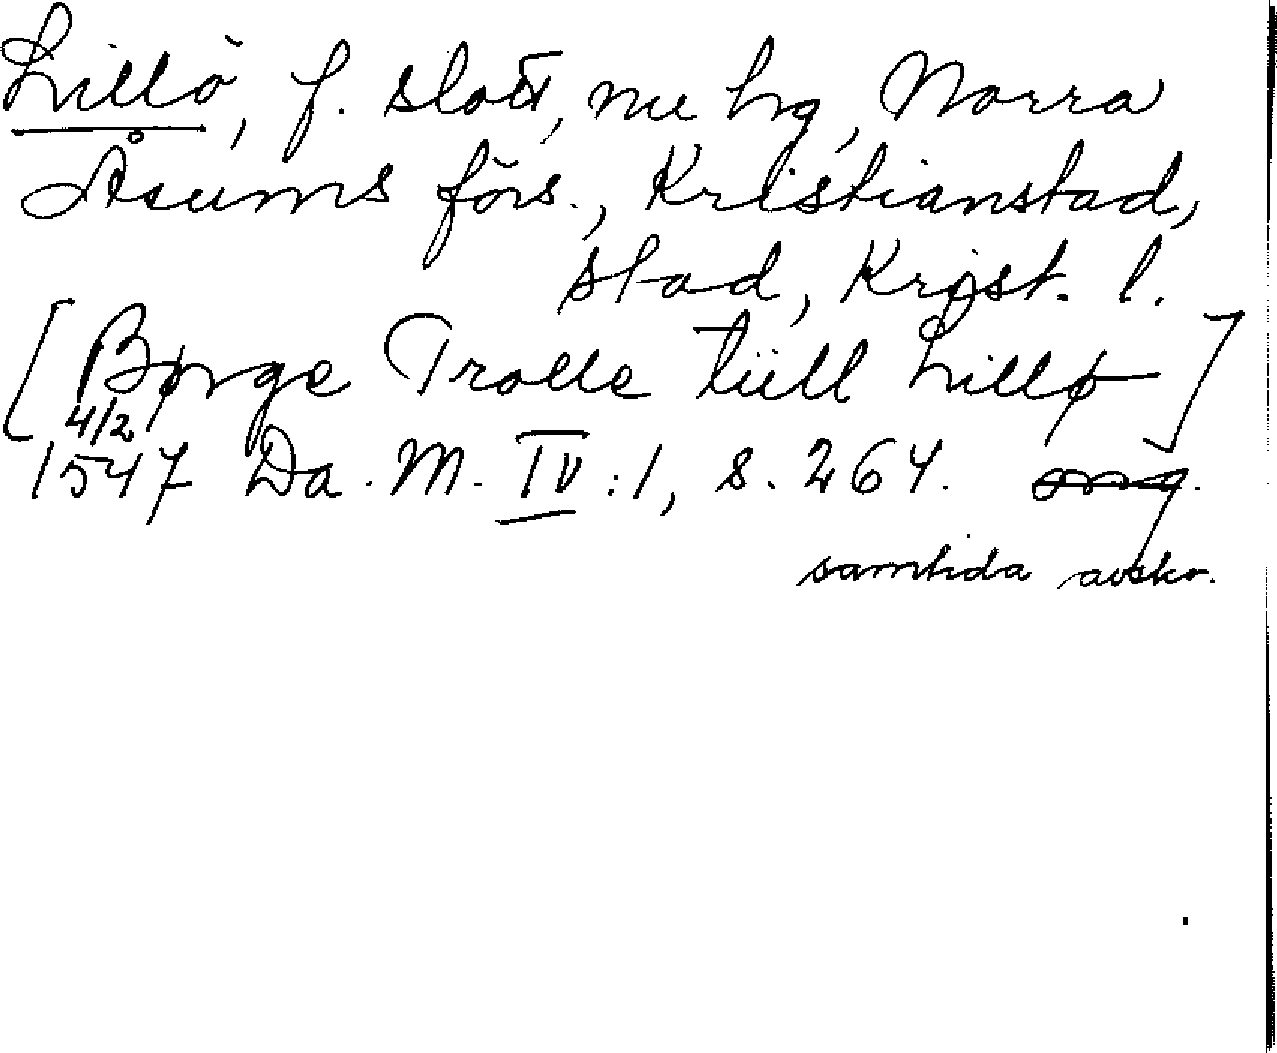 Lillö, f. slott, nu hg, Norra
Åsums förs., Kristianstad,
stad, Krist. l.
[Børge Trolle tüll Lillø]
4/2
1547 Da. M. IV:1, s. 264. orig.
samtida avskr.